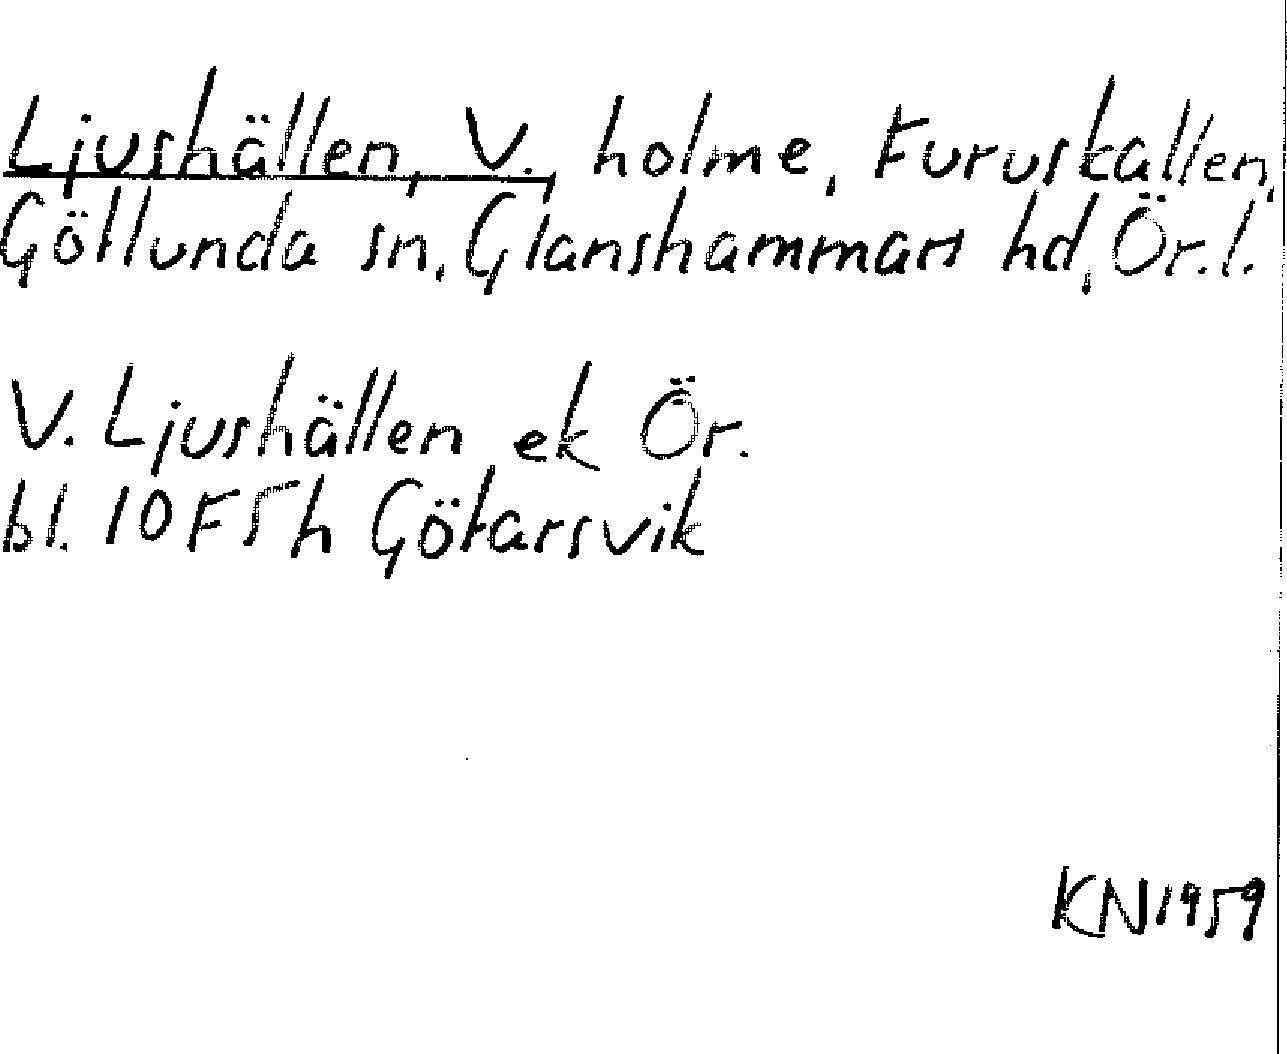 Ljushällen, V., holme, Furuskallen,
Götlunda sn, Glanshammars hd, Ör. l.
V. Ljushällen ek Ör.
bl. 10F5h Götarsvik
KN1959